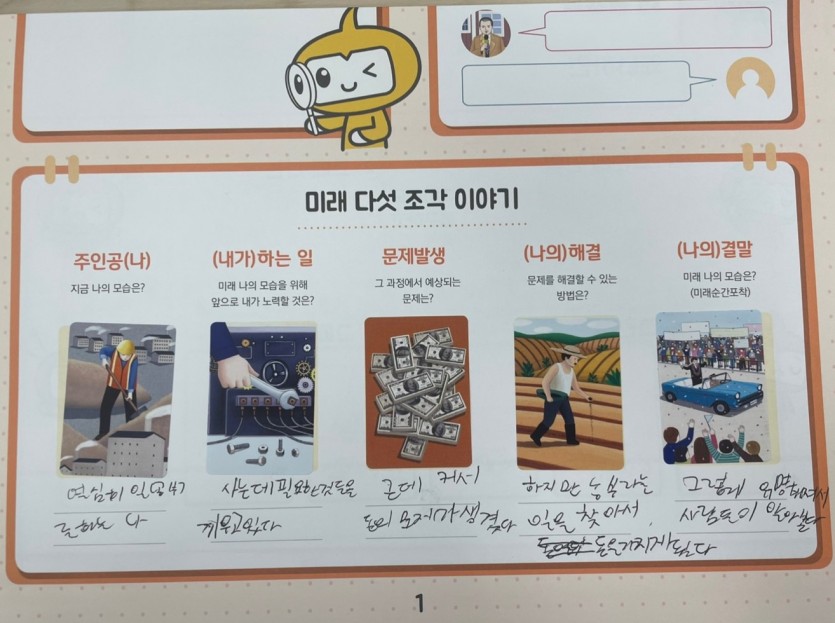 미래 다섯 조각 이야기
주인공(나)
지금 나의 모습은?
열심히 일 공부
를 하는 나
(내가)하는 일
미래 나의 모습을 위해
앞으로 내가 노력할 것은?
사는데 필요한것들을
배우고있다
문제발생
그 과정에서 예상되는
문제는?
근데 커서
돈의 문제가 생겼다
(나의)해결
문제를 해결할 수 있는
방법은?
하지만 농부라는
일을 찾아서
돈을 가지게 된다
(나의)결말
미래 나의 모습은?
(미래순간포착)
그렇게 유명해져서
사람들이 알아본다
1